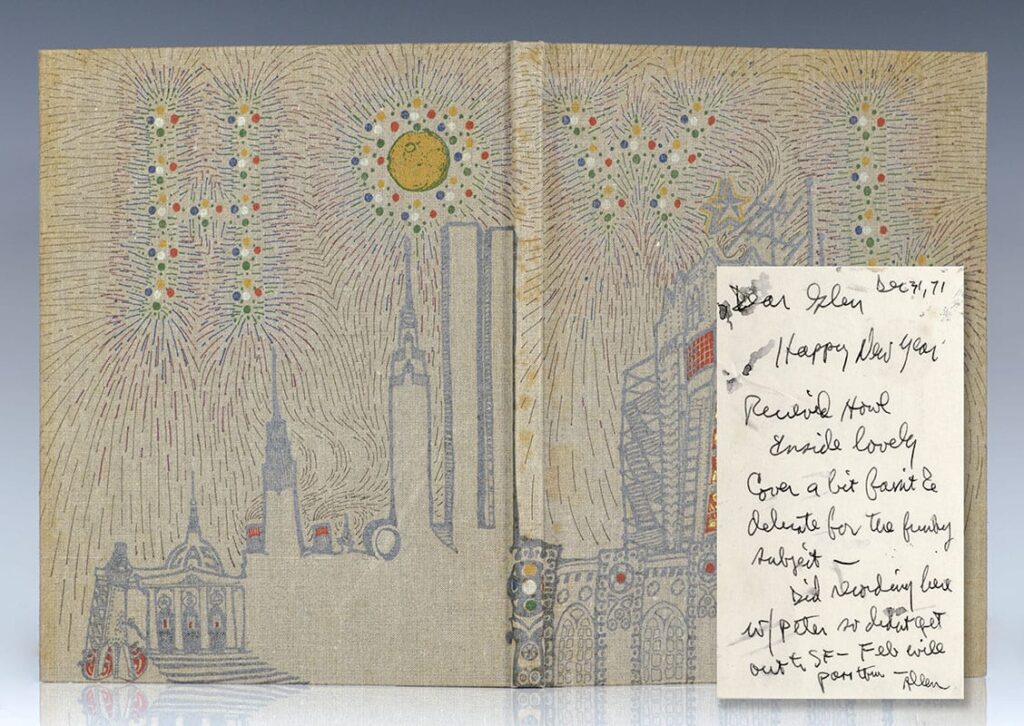 HOWL
Dear Glen Dec 31, 71
Happy New Year
Received Howl
Inside lovely
Cover a bit faint &
delicate for the funky
subject —
Did recording here
w/ Peter so didnt get
out to SF — Feb will
— Allen